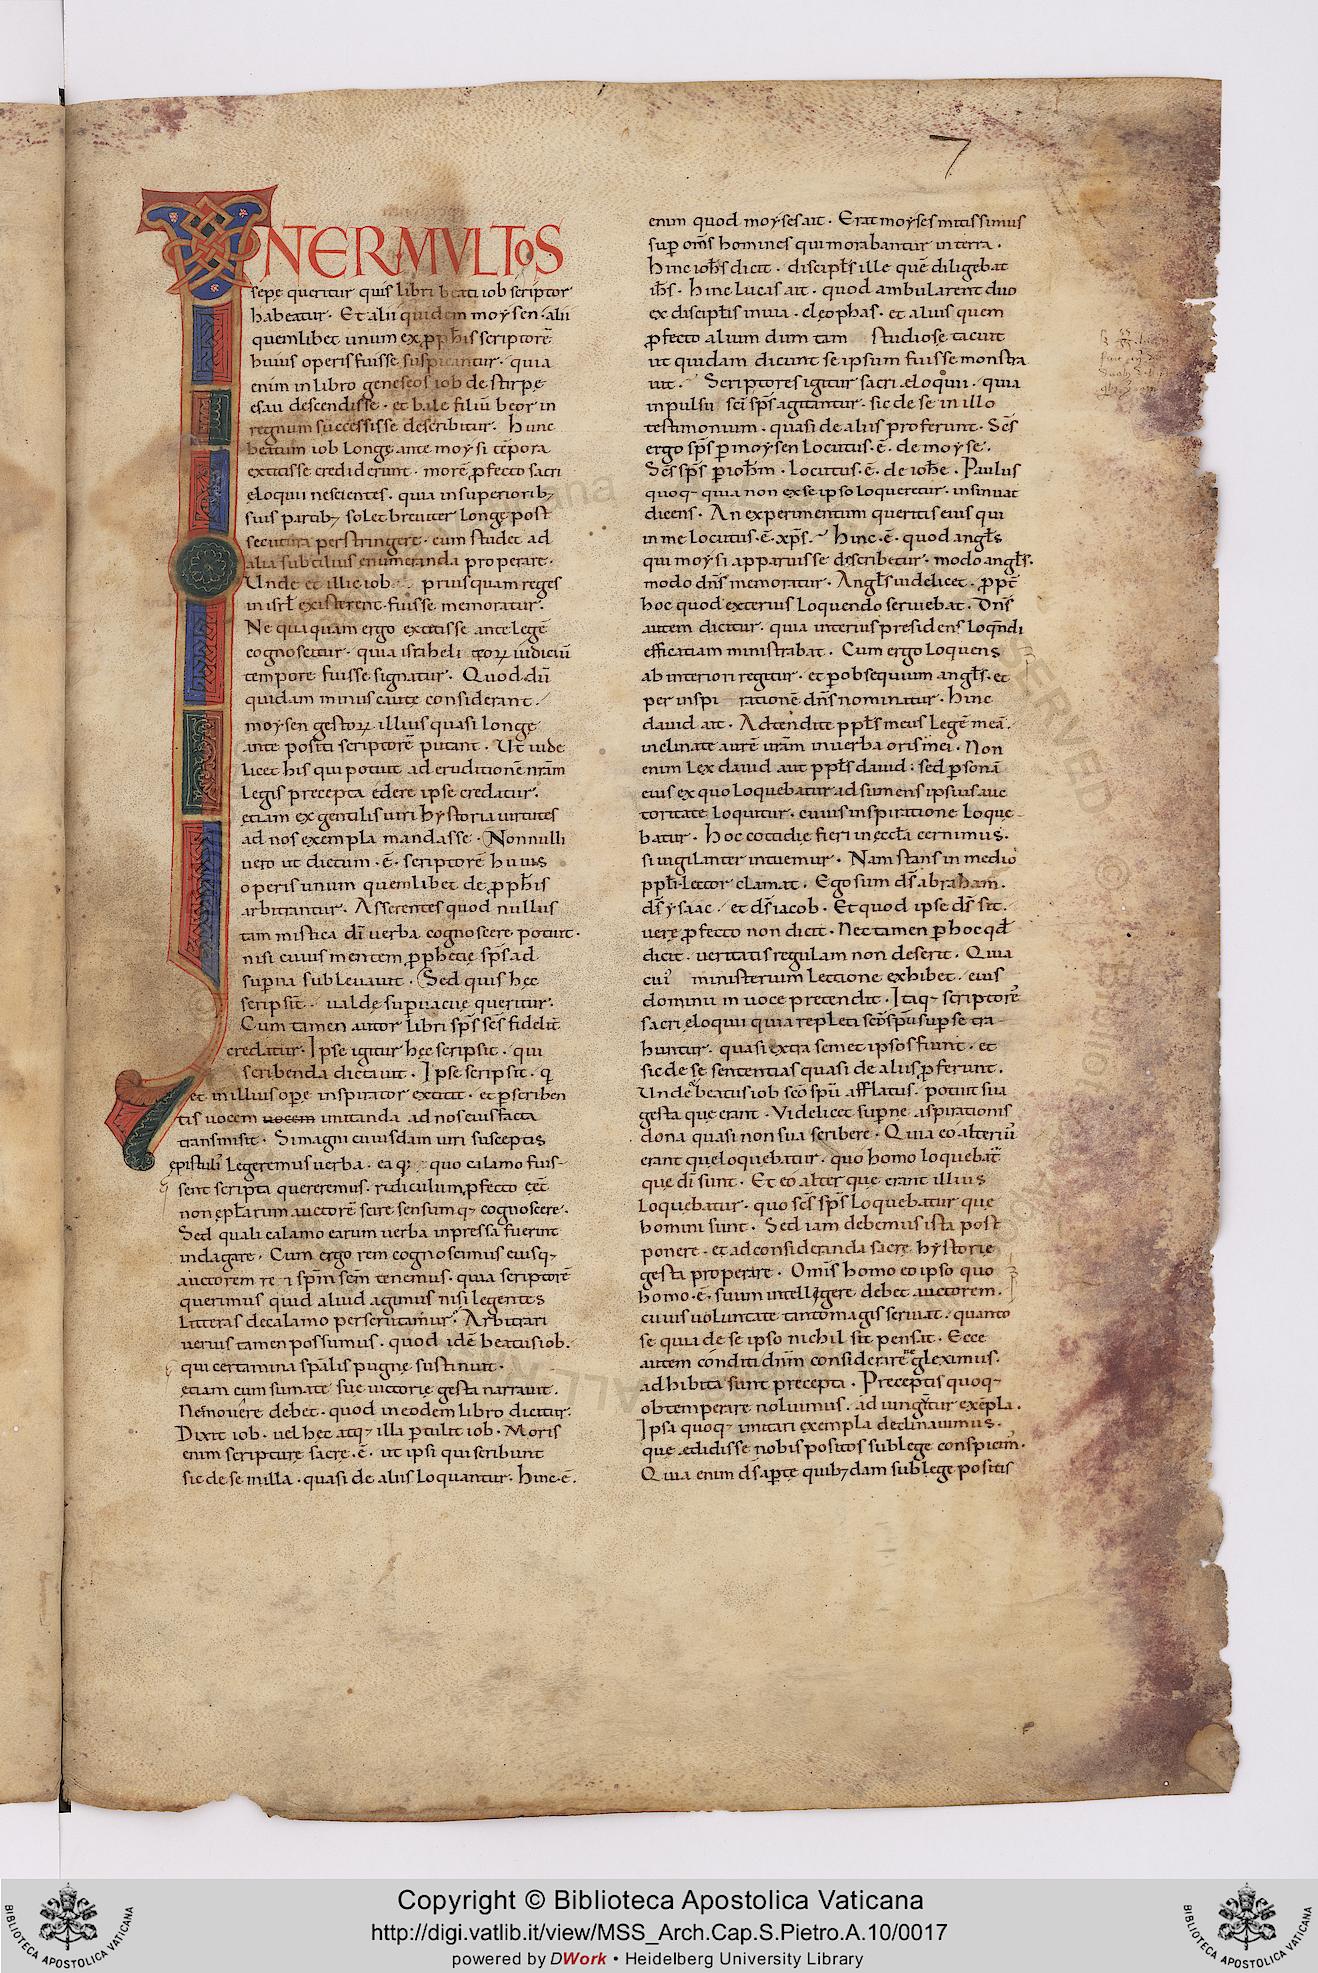 7
INTER MVLTOS
sepe queritur quis libri beati iob scriptor
habeatur · Et alii quidem moysen · alii
quemlibet unum ex ꝓph̅is scriptorē
huius operis fuisse suspicantur · quia
enim in libro geneseos iob de stirpe
esau descendisse · et bale filiū beor in
regnum successisse describitur · Hunc
beatum iob longe ante moysi tēpora
extitisse crediderunt · morē ꝓfecto sacri
eloquii nescientes · quia in superiorib;
suis partib; solet breuiter longe post
secutura perstringere · cum studet ad
alia subtilius enumeranda properare ·
Unde et illic iob priusquam reges
in isrl̅ existerent fuisse memoratur ·
Nequaquam ergo extitisse ante legē
cognoscitur · quia israheli coꝝ iudicū
tempore fuisse signatur · Quod dū
quidam minus caute considerant ·
moysen gestoꝝ illius quasi longe
ante positi scriptorē putant · Ut uide
licet his qui potuit ad eruditionē nr̅am
legis precepta edere ipse credatur ·
etiam ex gentilis uiri hystoria uirtutes
ad nos exempla mandasse · Nonnulli
uero ut dictum · ē · scriptorē huius
operis unum quemlibet de ꝓph̅is
arbitrantur · Asserentes quod nullus
tam mistica dī uerba cognoscere potuit ·
nisi cuius mentem ꝓphetie sp̅s ad
suꝑna subleuauit · Sed quis hec
scripsit · ualde suꝑuacue queritur ·
Cum tamen autor libri sp̅s sc̅s fidelit̅
credatur · Ipse igitur hec scripsit · qui
scribenda dictauit · Ipse scripsit · q
et in illius oꝑe inspirator extitit · et ꝑ scriben
tis uocem uocem imitanda ad nos eius facta
transmisit · Si magni cuiusdam uiri susceptis
epistulis legeremus uerba · ea q; quo calamo fuis-
sent scripta quereremus · ridiculum ꝓfecto eēt
non epl̅arum auctorē scire sensumq; cognoscere ·
Sed quali calamo earum uerba inpressa fuerint
indagare · Cum ergo rem cognoscimus eiusq;
auctorem re ⁊ sp̅m sc̅m tenemus · quia scriptorē
querimus quid aliud agimus nisi legentes
litteras de calamo perscrutamur · Arbitrari
uerius tamen possumus · quod idē beatus iob ·
qui certamina sp̅alis pugne sustinuit ·
etiam cum sumate sue uictorie gesta narrauit ·
Nec mouere debet · quod in eodem libro dicitur ·
Dixit iob · uel hec atq; illa ꝑtulit iob · Moris
enim scripture sacre · ē · ut ipsi qui scribunt
sic de se in illa · quasi de aliis loquantur · Hinc · ē ·
enim quod moyses ait · Erat moyses mitissimus
suꝑ om̅s homines qui morabantur in terra ·
Hinc ioh̅s dicit · discipl̅s ille quē diligebat
ih̅s · Hinc lucas ait · quod ambularent duo
ex discipl̅is in uia · cleophas · et alius quem
ꝓfecto alium dum tam studiose tacuit
ut quidam dicunt se ipsum fuisse monstra
uit · Scriptores igitur sacri eloquii · quia
inpulsu sc̅i sp̅s agitantur · sic de se in illo
testimonium · quasi de aliis proferunt · Sc̅s
ergo sp̅s ꝑ moysen locutus · ē · de moyse ·
Sc̅s sp̅s ꝑ ioh̅m · locutus · ē · de ioh̅e · Paulus
quoq; quia non ex se ipso loqueretur · insinuat
dicens · An experimentum queritis eius qui
in me locutus · ē · xp̅s · Hinc · ē · quod angl̅s
qui moysi apparuisse describetur · modo angl̅s ·
modo dn̅s memoratur · Angl̅s uidelicet · ꝓpt̅
hoc quod exterius loquendo seruiebat · Dn̅s
autem dicitur · quia interius presidens loqndi
efficatiam ministrabat · Cum ergo loquens
ab interiori regitur · et ꝑ obsequium angl̅s · et
per inspirationē dn̅s nominatur · Hinc
dauid ait · Adtendite ppl̅s meus legē meā ·
inclinate aurē ur̅am in uerba oris mei · Non
enim lex dauid aut ppl̅s dauid : sed ꝑsonā
eius ex quo loquebatur adsumens ipsius auc
toritate loquitur · cuius inspiratione loque-
batur · Hoc cottidie fieri in eccl̅a cernimus ·
si uigilanter intuemur · Nam stans in medio
ppl̅i lector clamat · Ego sum d̅s abraham ·
d̅s ysaac · et d̅s iacob · Et quod ipse d̅s sit ·
uere ꝓfecto non dicit · Nec tamen ꝑ hoc qd̅
dicit · ueritatis regulam non deserit · Quia
cui ministerium lectione exhibet · eius
dominu in uoce pretendit · Itaq; scriptorē
sacri eloquii quia repleti sc̅o sp̅u suꝑ se tra-
huntur · quasi extra semet ipsos fiunt · et
sic de se sententias quasi de aliis ꝓferunt ·
Unde beatus iob sc̅o sp̅u afflatus · potuit sua
gesta que erant · Videlicet suꝑne aspirationis
dona quasi non sua scribere · Quia eo alteriu̅
erant que loquebatur · quo homo loquebat̅
que dī sunt · Et eo alter que erant illius
loquebatur · quo sc̅s sp̅s loquebatur que
homini sunt · Sed iam debemus ista post
ponere · et ad consideranda sacre hystorie
gesta properare · Om̅is homo eo ipso quo
homo · ē · suum intelligere debet auctorem ·
cuius uoluntate tanto magis seruiat · quanto
se quia de se ipso nichil sit pensat · Ecce
autem conditi dn̅m considerare negleximus ·
adhibita sunt precepta · Preceptis quoq;
obtemperare noluimus · adiungitur exēpla ·
Ipsa quoq; imitari exempla declinauimus ·
que edidisse nobis positos sub lege conspicim̅ ·
Quia enim d̅s aꝑte quib;dam sub lege positis
Copyright © Biblioteca Apostolica Vaticana
http://digi.vatlib.it/view/MSS_Arch.Cap.S.Pietro.A.10/0017
powered by DWork • Heidelberg University Library
BIBLIOTECA APOSTOLICA VATICANA
BIBLIOTECA APOSTOLICA VATICANA